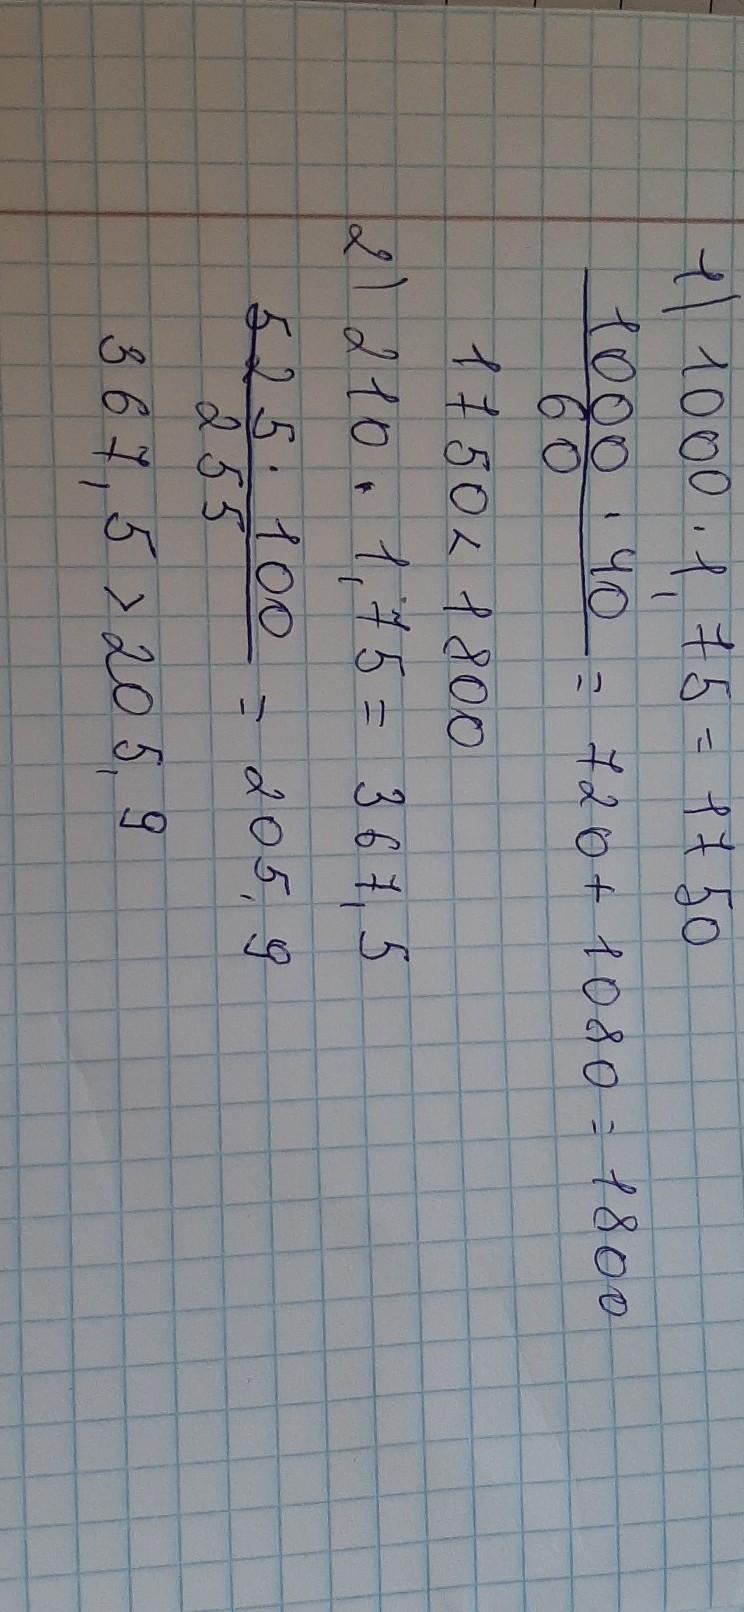 1) 1000 · 1,75 = 1750
1000 · 40
60
= 720 + 1080 = 1800
1750 < 1800
2) 210 · 1,75 = 367,5
525 · 100
255
= 205,9
367,5 > 205,9